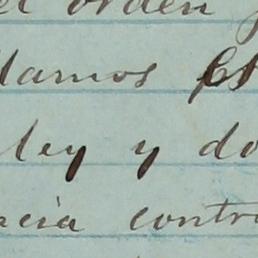 el orden
llamos
ley y do
acia contra